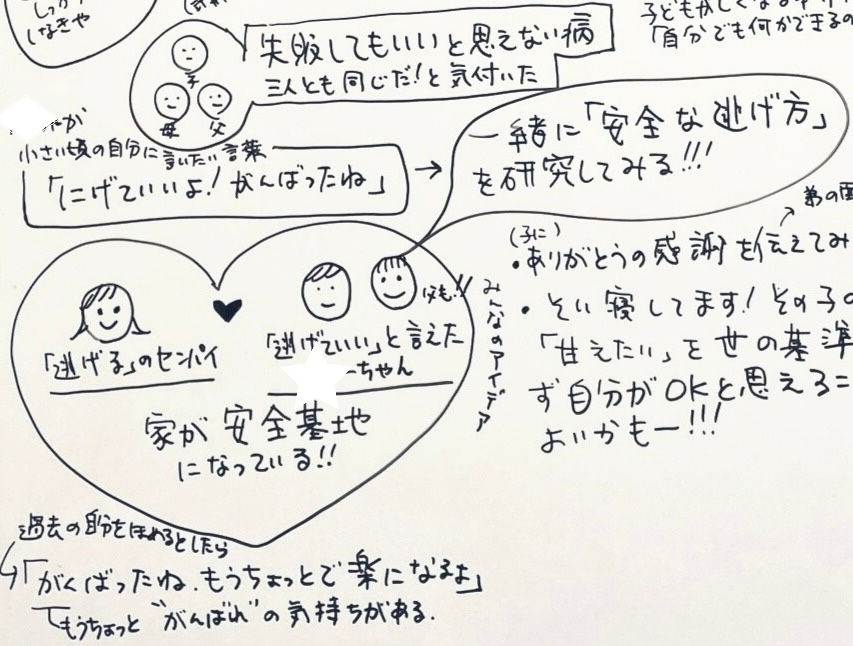 しっか
しなきゃ
子
母 父
失敗してもいいと思えない病
三人とも同じだ!と気付いた
「自分でも何かできるの
が
小さい頃の自分に言いたい言葉
「にげていいよ! がんばったね」
→
一緒に「安全な逃げ方」
を研究してみる!!!
弟の面
(子に)
・ありがとうの感謝を伝えてみ
・そい寝してます! その子の
「甘えたい」を世の基準
ず自分がOKと思えるこ
よいかもー!!!
みんなのアイデア
父も!!
「逃げる」のセンパイ
「逃げていい」と言えた
ーちゃん
家が安全基地
になっている!!
過去の自分をほめるとしたら
「がんばったね、もうちょっとで楽になるよ」
もうちょっと"がんばれ"の気持ちがある.